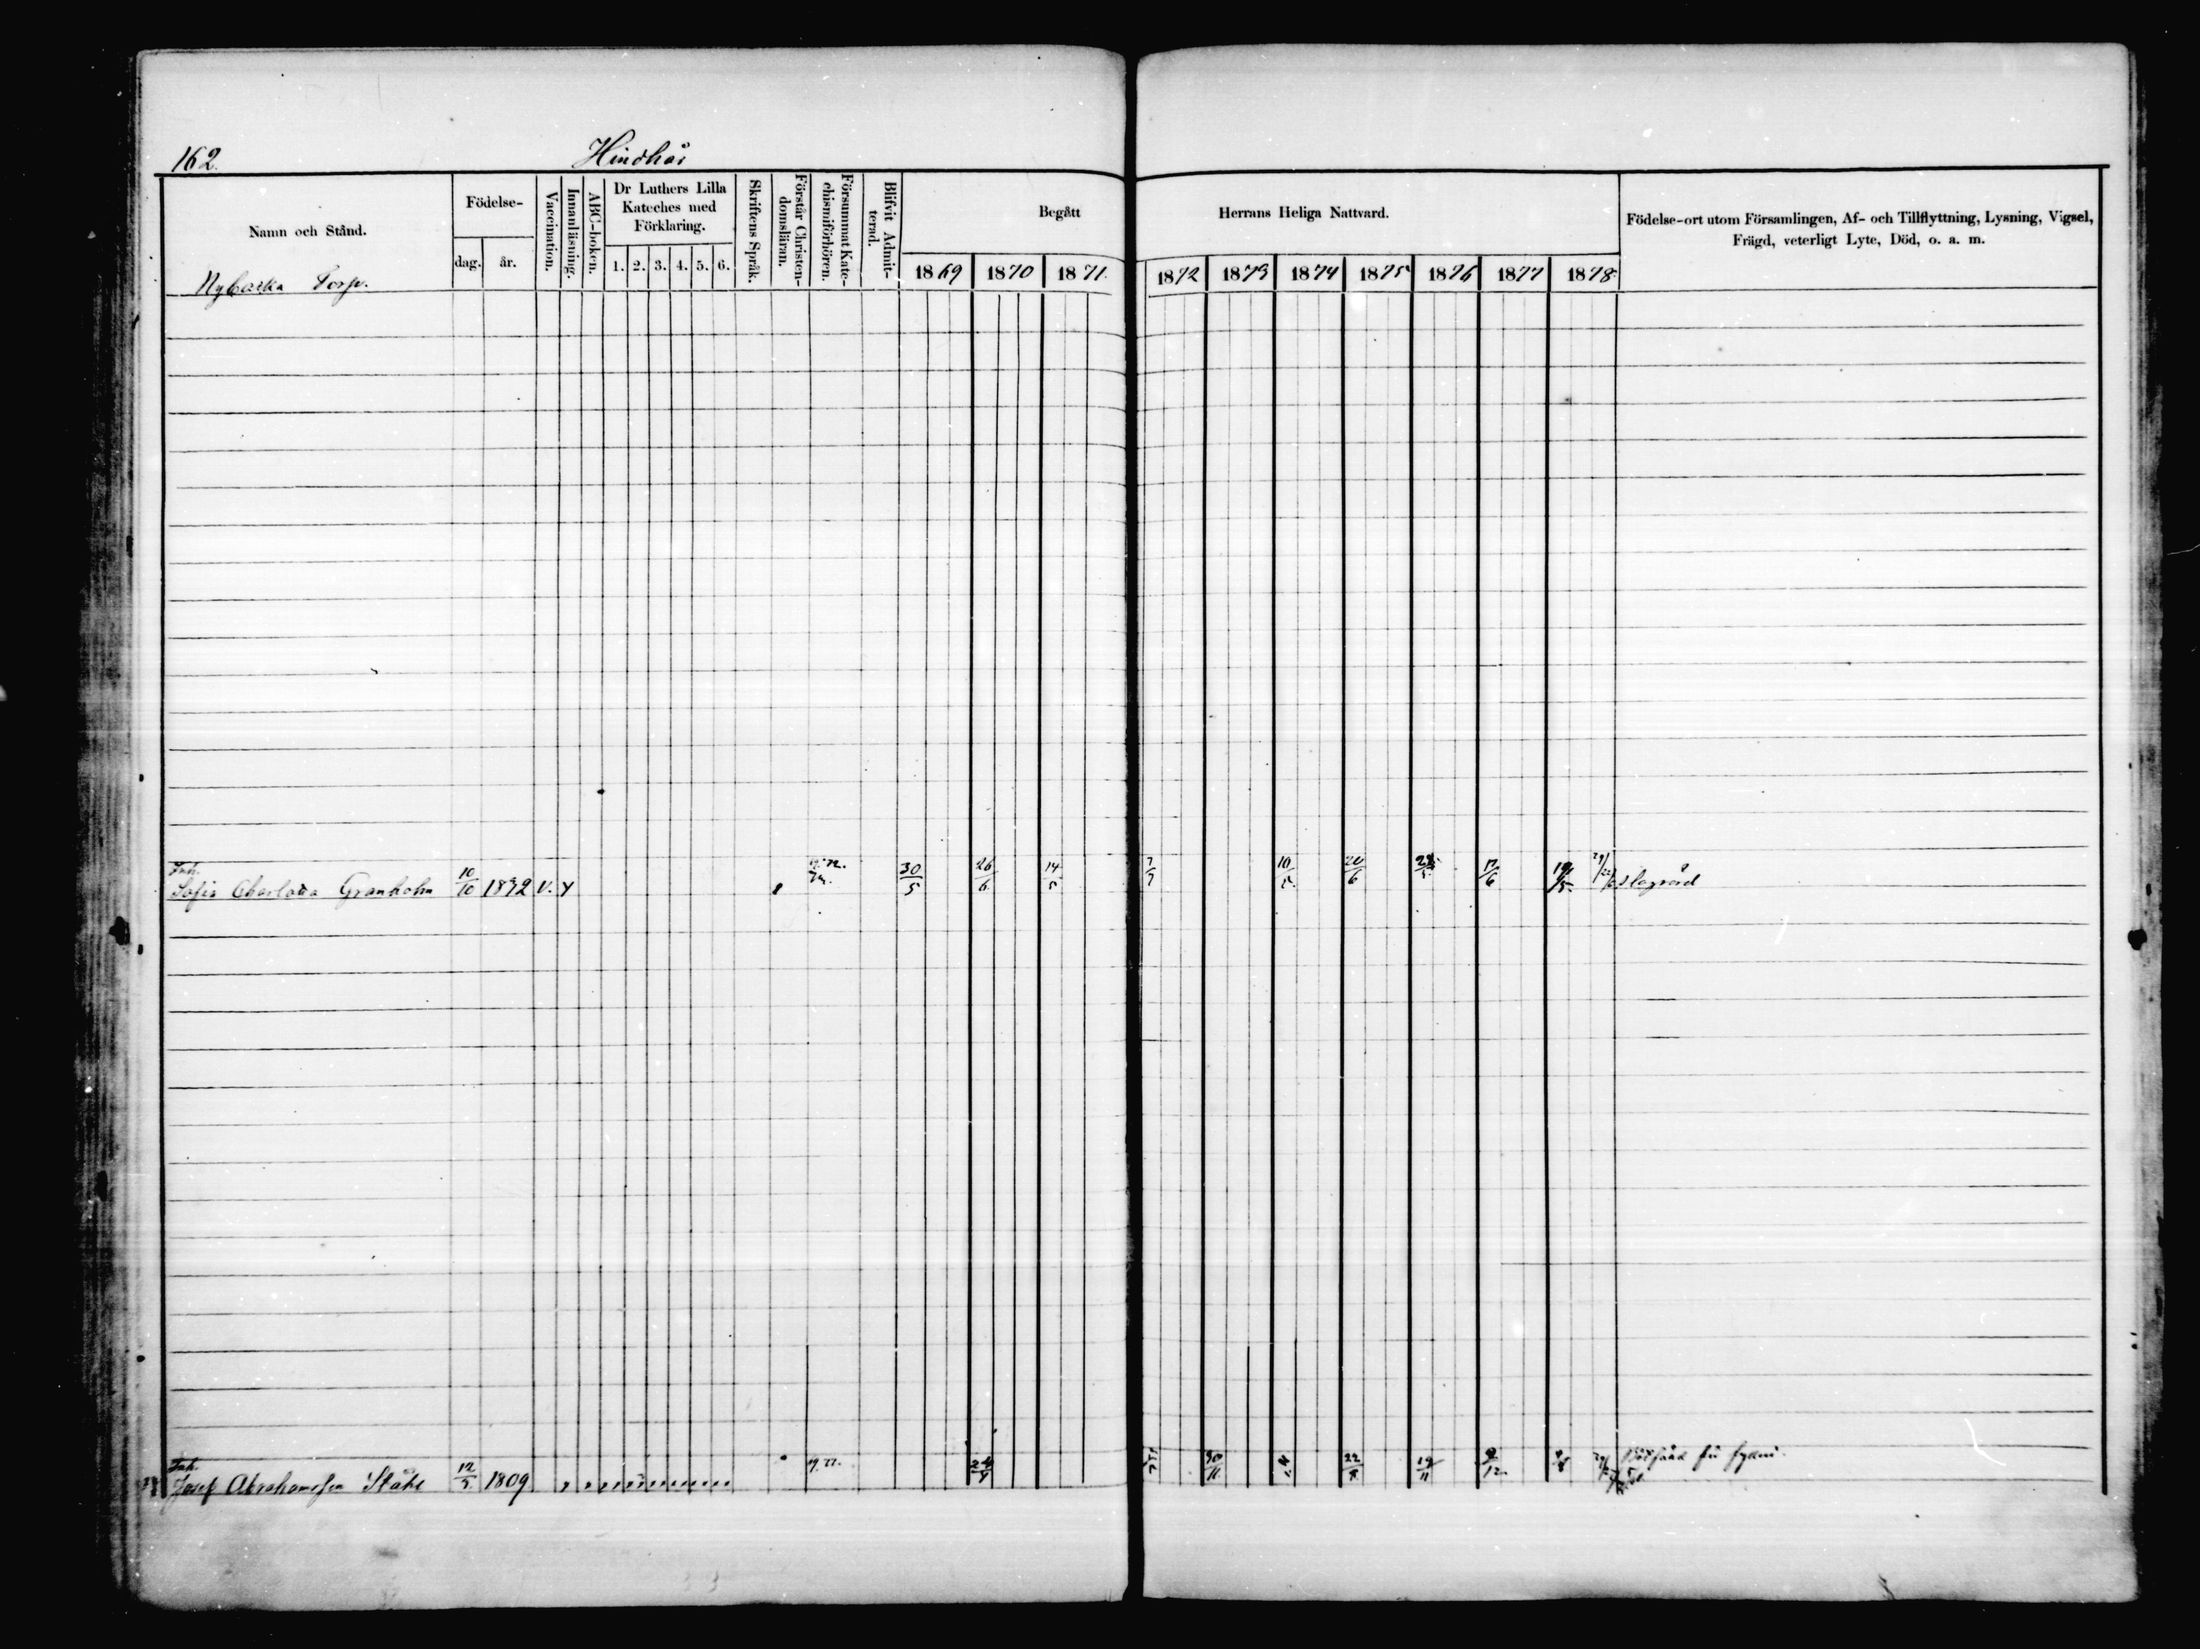 162.
Hindhår
Namn och Stånd.
Födelse-
dag.
år.
Vaccination.
Innanläsning.
ABC-boken.
Dr Luthers Lilla
Kateches med
Förklaring.
1. 2. 3. 4. 5. 6.
Skriftens Språk.
Förstår Christen-
domsläran.
Försummat Kate-
chismiförhören.
Blifvit Admit-
terad.
Begått
Herrans Heliga Nattvard.
1869 1870 1871 1872 1873 1874 1875 1876 1877 1878
Födelse-ort utom Församlingen, Af- och Tillflyttning, Lysning, Vigsel,
Frägd, veterligt Lyte, Död, o. a. m.
Nybacka Torp.
Inh.
Sofia Charlotta Granholm 10/10 V. 30/5 26/6 14/5 7/7 10/5 20/6 17/6 19/5
Inh.
Josef Abrahamsson Ståhl 12/5 1809 30/11 19/11 9/12